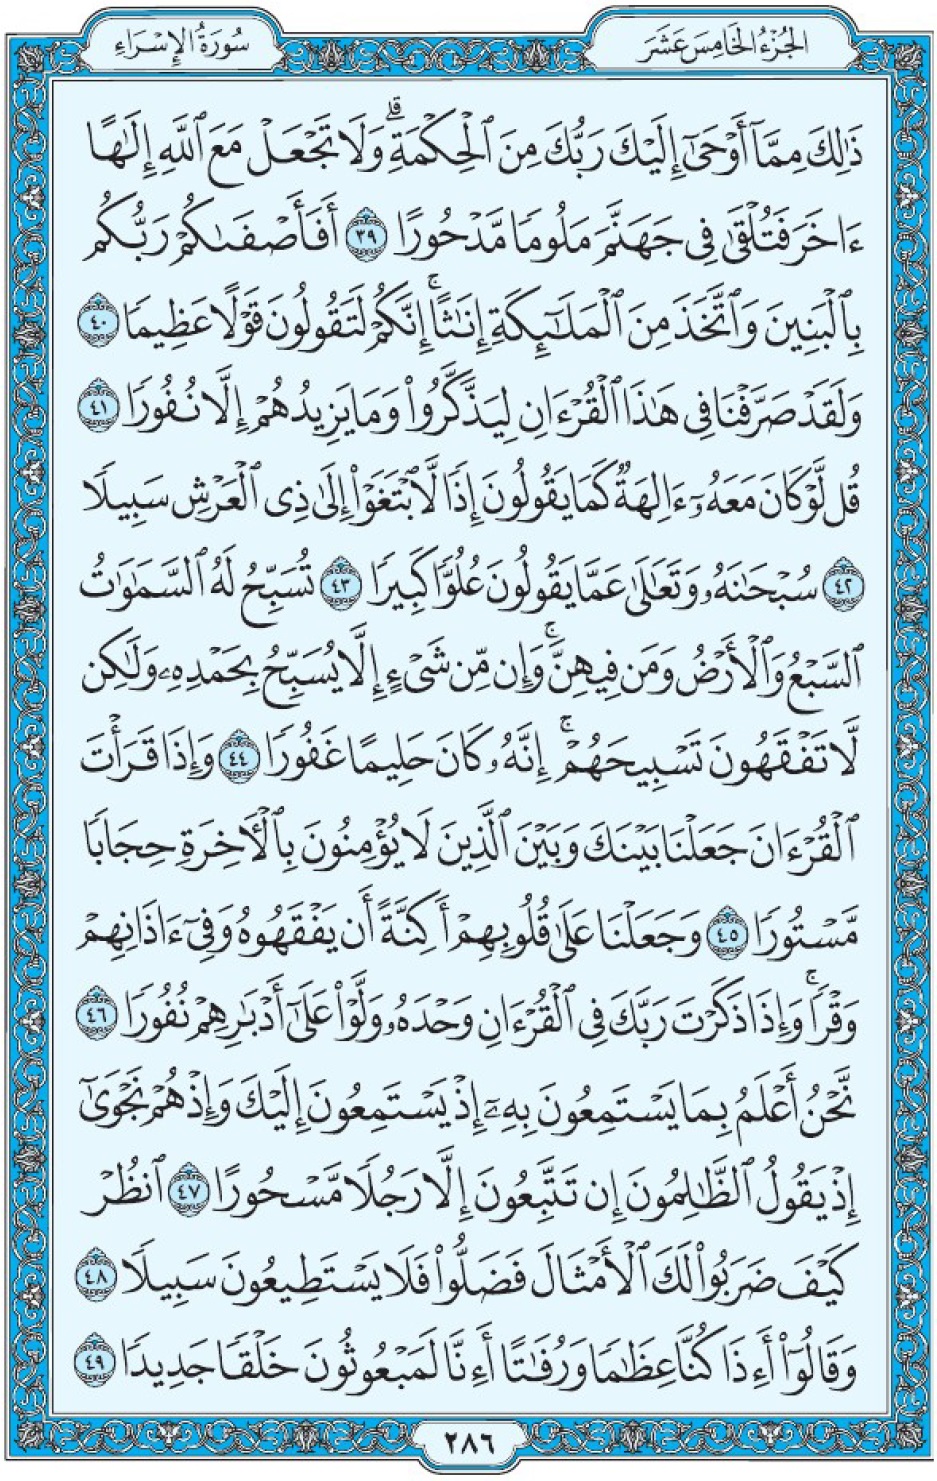 سُورَةُ الإِسْرَاءِ
الجُزْءُ الخَامِسَ عَشَرَ
ذَٰلِكَ مِمَّآ أَوْحَىٰٓ إِلَيْكَ رَبُّكَ مِنَ ٱلْحِكْمَةِۗ وَلَا تَجْعَلْ مَعَ ٱللَّهِ إِلَٰهًا
ءَاخَرَ فَتُلْقَىٰ فِى جَهَنَّمَ مَلُومًا مَّدْحُورًا ٣٩ أَفَأَصْفَىٰكُمْ رَبُّكُم
بِٱلْبَنِينَ وَٱتَّخَذَ مِنَ ٱلْمَلَٰٓئِكَةِ إِنَٰثًاۚ إِنَّكُمْ لَتَقُولُونَ قَوْلًا عَظِيمًا ٤٠
وَلَقَدْ صَرَّفْنَا فِى هَٰذَا ٱلْقُرْءَانِ لِيَذَّكَّرُوا۟ وَمَا يَزِيدُهُمْ إِلَّا نُفُورًا ٤١
قُل لَّوْ كَانَ مَعَهُۥٓ ءَالِهَةٌ كَمَا يَقُولُونَ إِذًا لَّٱبْتَغَوْا۟ إِلَىٰ ذِى ٱلْعَرْشِ سَبِيلًا
٤٢ سُبْحَٰنَهُۥ وَتَعَٰلَىٰ عَمَّا يَقُولُونَ عُلُوًّا كَبِيرًا ٤٣ تُسَبِّحُ لَهُ ٱلسَّمَٰوَٰتُ
ٱلسَّبْعُ وَٱلْأَرْضُ وَمَن فِيهِنَّۚ وَإِن مِّن شَىْءٍ إِلَّا يُسَبِّحُ بِحَمْدِهِۦ وَلَٰكِن
لَّا تَفْقَهُونَ تَسْبِيحَهُمْۚ إِنَّهُۥ كَانَ حَلِيمًا غَفُورًا ٤٤ وَإِذَا قَرَأْتَ
ٱلْقُرْءَانَ جَعَلْنَا بَيْنَكَ وَبَيْنَ ٱلَّذِينَ لَا يُؤْمِنُونَ بِٱلْءَاخِرَةِ حِجَابًا
مَّسْتُورًا ٤٥ وَجَعَلْنَا عَلَىٰ قُلُوبِهِمْ أَكِنَّةً أَن يَفْقَهُوهُ وَفِىٓ ءَاذَانِهِمْ
وَقْرًاۚ وَإِذَا ذَكَرْتَ رَبَّكَ فِى ٱلْقُرْءَانِ وَحْدَهُۥ وَلَّوْا۟ عَلَىٰٓ أَدْبَٰرِهِمْ نُفُورًا ٤٦
نَّحْنُ أَعْلَمُ بِمَا يَسْتَمِعُونَ بِهِۦٓ إِذْ يَسْتَمِعُونَ إِلَيْكَ وَإِذْ هُمْ نَجْوَىٰٓ
إِذْ يَقُولُ ٱلظَّٰلِمُونَ إِن تَتَّبِعُونَ إِلَّا رَجُلًا مَّسْحُورًا ٤٧ ٱنظُرْ
كَيْفَ ضَرَبُوا۟ لَكَ ٱلْأَمْثَالَ فَضَلُّوا۟ فَلَا يَسْتَطِيعُونَ سَبِيلًا ٤٨
وَقَالُوٓا۟ أَءِذَا كُنَّا عِظَٰمًا وَرُفَٰتًا أَءِنَّا لَمَبْعُوثُونَ خَلْقًا جَدِيدًا ٤٩
٢٨٦